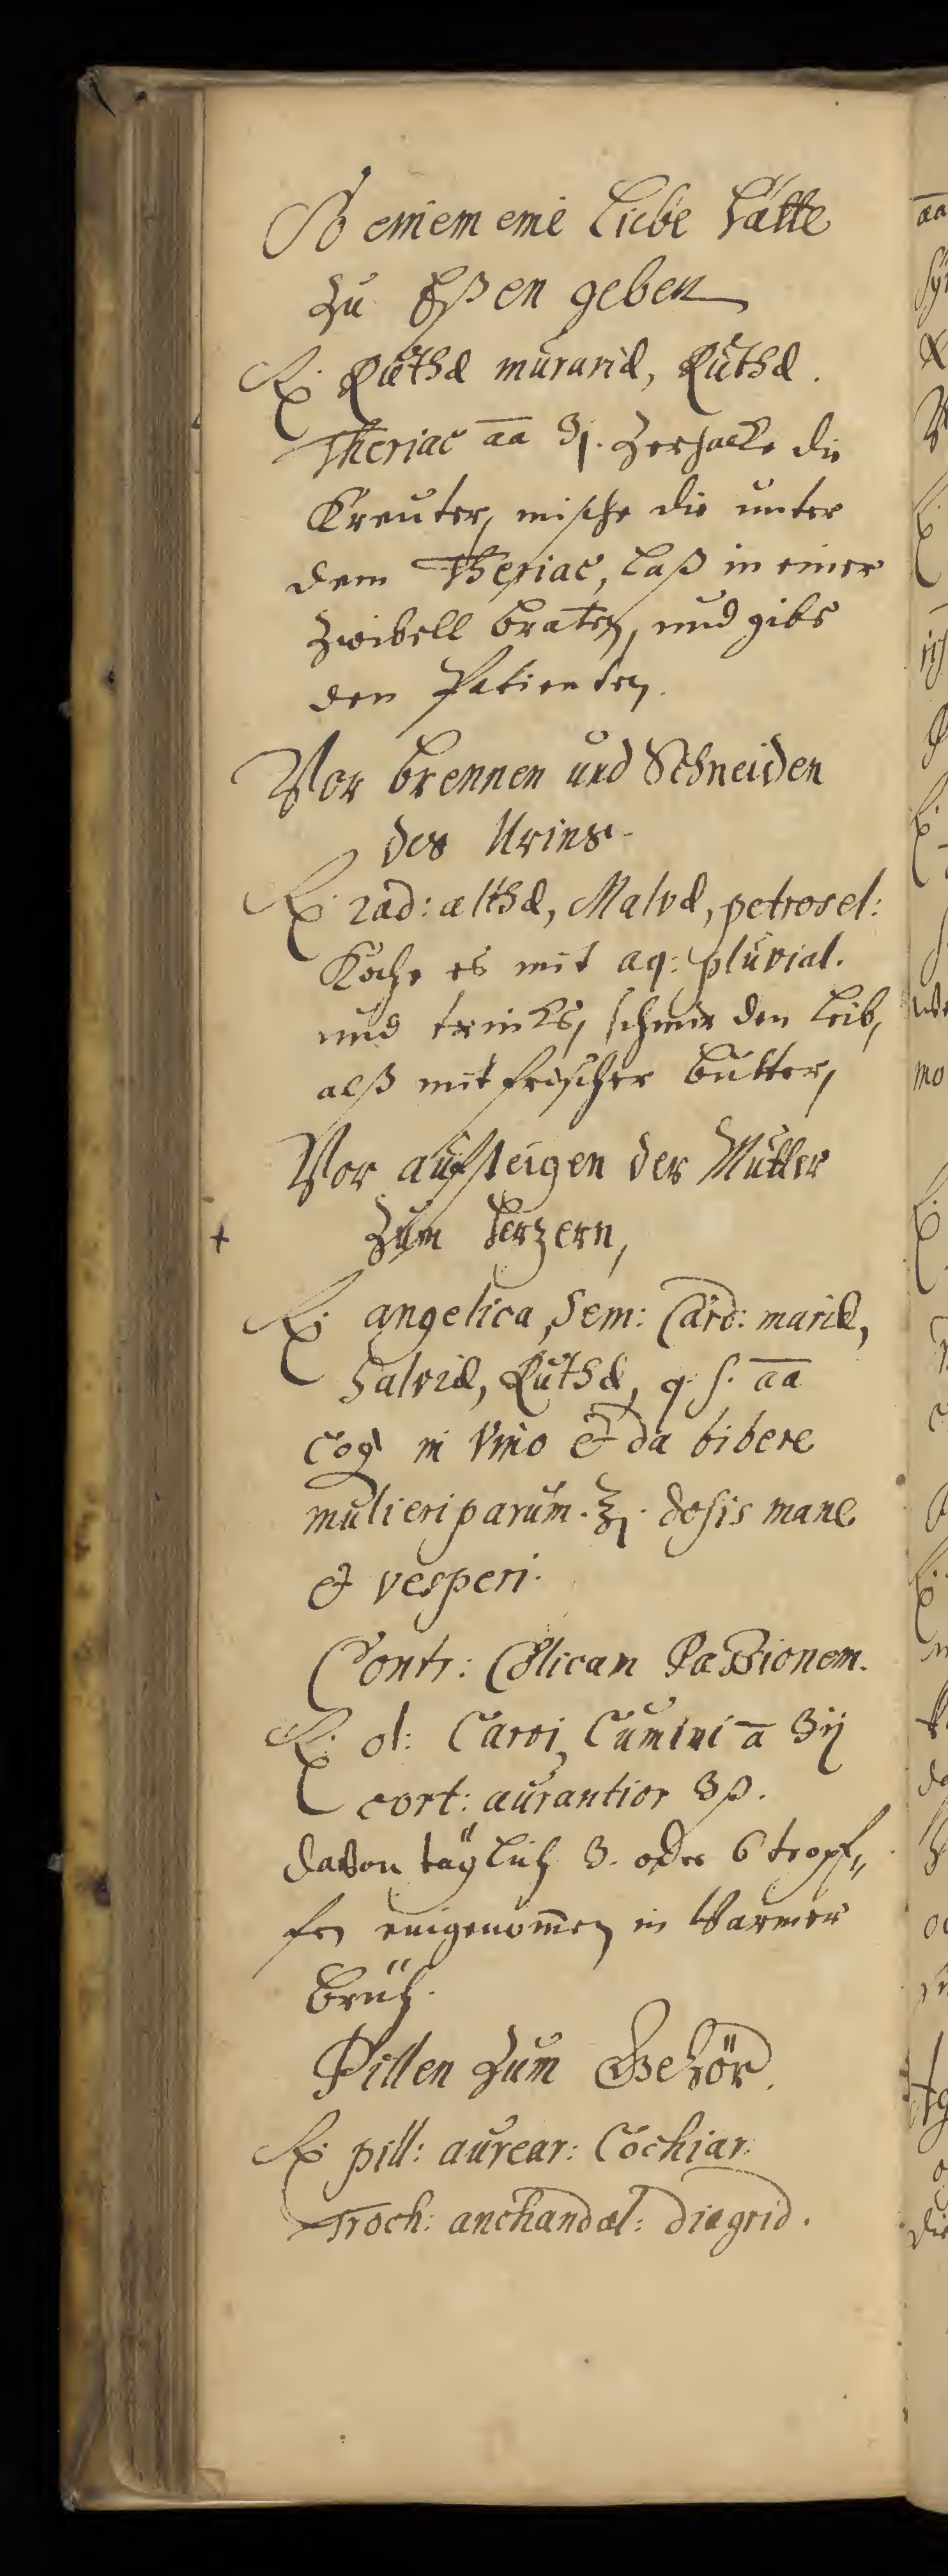 So einem eine Liebe hätte
zu Eßen geben
℞ Ruthæ murariæ, Ruthæ.
Theriac aa ʒj. Zerhacke die
Kreuter, mische die unter
dem Theriac, laß in einer
Zwibell braten, und gibs
den Patienten.
Vor brennen und Schneiden
des Urins.
℞ rad: althæ, Malvæ, petrosel:
Koche es mit aq: pluvial.
und trincks, schmir den Leib,
alß mit frischer butter,
Vor aufsteigen der Mutter
+ Zum Herzen,
℞ angelica, Sem: Card: mariæ,
Salviæ, Ruthæ, q. s. aa
coq in vino & da bibere
mulieri parum. ℥j. dosis mane
& vesperi.
Contr: Colicam Passionem.
℞ ol: Carvi, Cumini a ʒij
cort: aurantior ʒß.
davon täglich 3. oder 6 tropf„
fen eingenom̄en in Warmer
brüh.
Pillen zum Gehör.
℞ pill: aurear: Cochiar:
Troch: anchandal: diagrid.